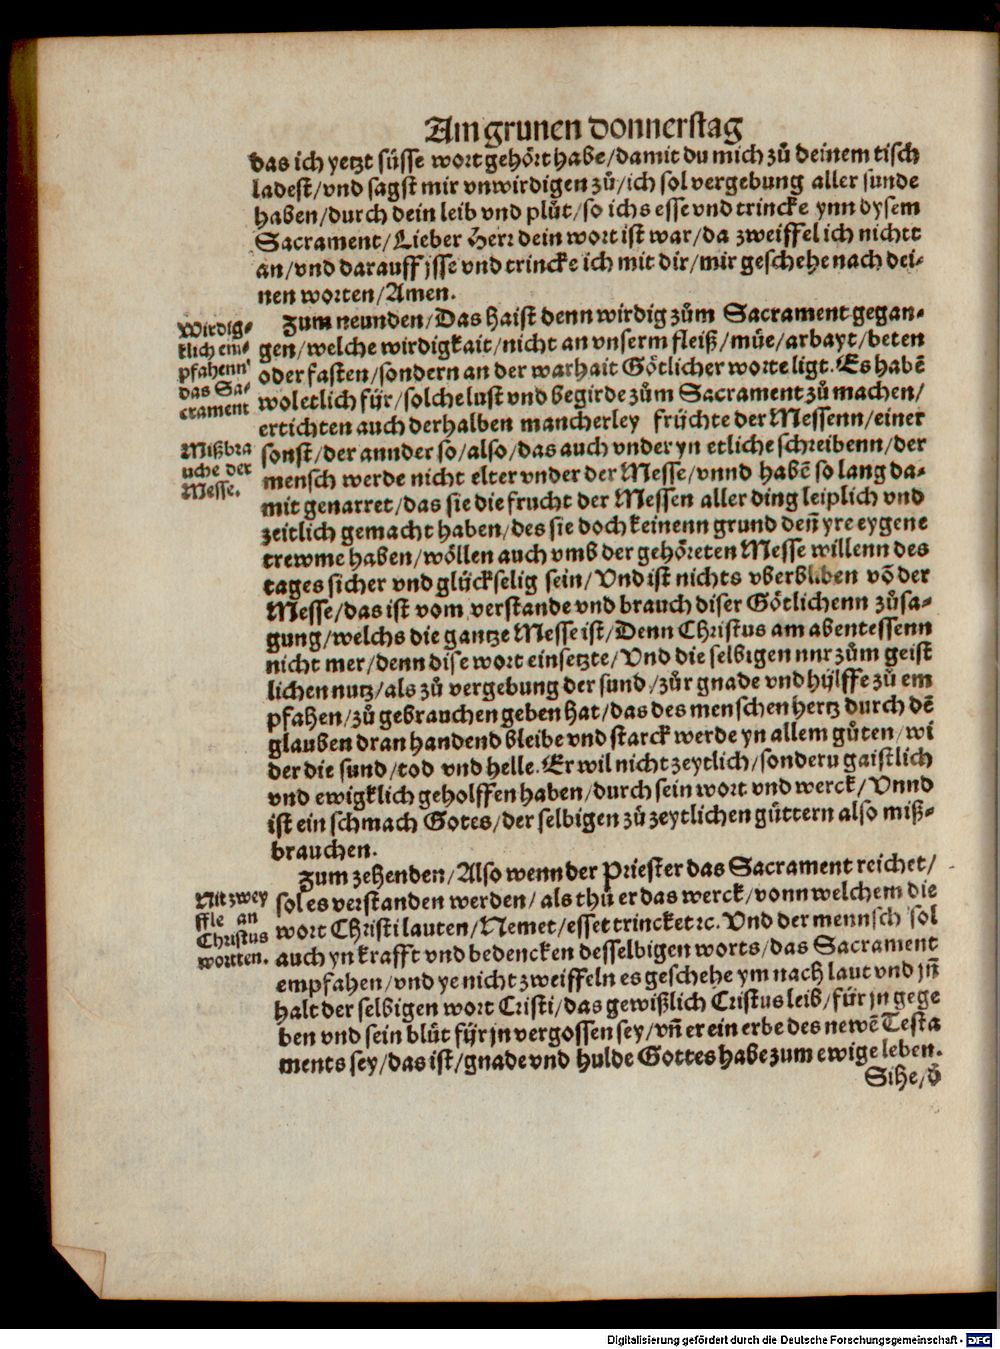 Am grunen donnerstag
das ich yetzt süsse wort gehört habe/damit du mich zů deinem tisch
ladest/vnd sagst mir vnwirdigen zů/ich sol vergebung aller sunde
haben/durch dein leib vnd plůt/so ichs esse vnd trincke ynn dysem
Sacrament/Lieber Herr dein wort ist war/da zweiffel ich nichtt
an/vnd darauff jsse vnd trincke ich mit dir/mir geschehe nach dei-
nen worten/Amen.
Wirdig-
klich em-
pfahenn
das Sa-
crament
Zum neunden/Das haist denn wirdig zům Sacrament gegan-
gen/welche wirdigkait/nicht an vnserm fleiß/müe/arbayt/beten
oder fasten/sondern an der warhait Götlicher worte ligt. Es habē
wol etlich für/solche lust vnd begirde zům Sacrament zů machen/
ertichten auch derhalben mancherley früchte der Messenn/einer
Mißbra
uche der
Messe.
sonst/der annder so/also/das auch vnder yn etliche schreibenn/der
mensch werde nicht elter vnder der Messe/vnnd habē so lang da-
mit genarret/das sie die frucht der Messen aller ding leiplich vnd
zeitlich gemacht haben/des sie doch keinenn grund deñ yre eygene
trewme haben/wöllen auch vmb der gehöreten Messe willenn des
tages sicher vnd glückselig sein/Vnd ist nichts vberbliben vō der
Messe/das ist vom verstande vnd brauch diser Götlichenn zůsa-
gung/welchs die gantze Messe ist/Denn Christus am abentessenn
nicht mer/denn dise wort einsetzte/Vnd die selbigen nnr zům geist
lichen nutz/als zů vergebung der sund/zůr gnade vnd hÿlffe zů em
pfahen/zů gebrauchen geben hat/das des menschen hertz durch dē
glauben dran handend bleibe vnd starck werde yn allem gůten/wi
der die sund/tod vnd helle. Er wil nicht zeytlich/sonderu gaistlich
vnd ewigklich geholffen haben/durch sein wort vnd werck/Vnnd
ist ein schmach Gotes/der selbigen zů zeytlichen güttern also miß-
brauchen.
Zum zehenden/Also wenn der Priester das Sacrament reichet/
Nit zwey
ffle an
Christus
wortten.
sol es verstanden werden/als thů er das werck/vonn welchem die
wort Christi lauten/Nemet/esset trincket ꝛc. Vnd der mennsch sol
auch yn krafft vnd bedencken desselbigen worts/das Sacrament
empfahen/vnd ye nicht zweiffeln es geschehe ym nach laut vnd jñ
halt der selbigen wort Cristi/das gewißlich Cristus leib/für jn gege
ben vnd sein blůt für jn vergossen sey/vñ er ein erbe des newē Testa
ments sey/das ist/gnade vnd hulde Gottes habe zum ewige leben.
Sihe/
Digitalisierung gefördert durch die Deutsche Forschungsgemeinschaft - DFG